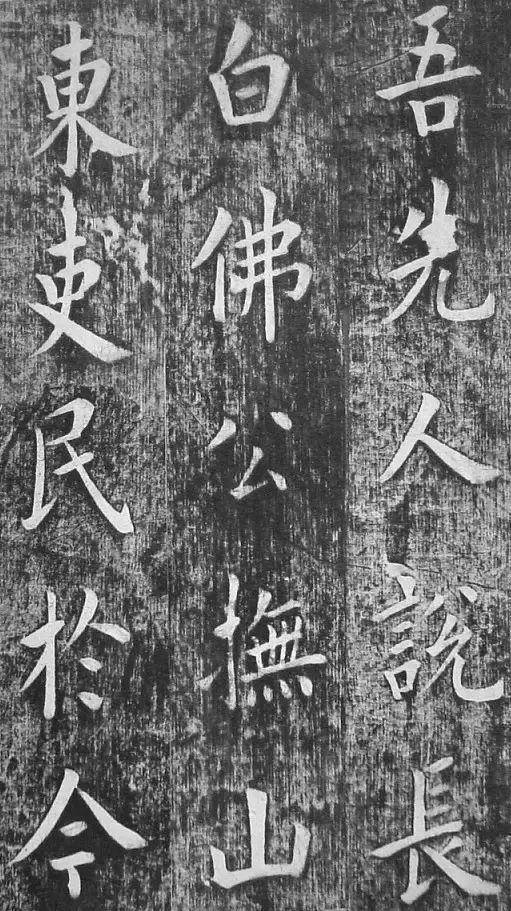 吾先人說長
白佛公撫山
東吏民於今